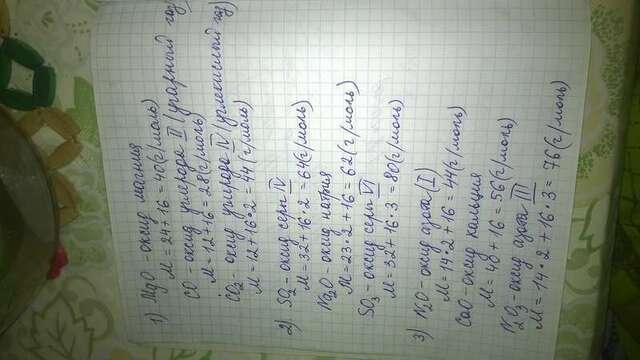 1) MgO - оксид магния
M = 24 + 16 = 40 (г/моль)
CO - оксид углерода II (угарный газ)
M = 12 + 16 = 28 (г/моль)
CO2 - оксид углерода IV (углекислый газ)
M = 12 + 16 · 2 = 44 (г/моль)
2) SO2 - оксид серы IV
M = 32 + 16 · 2 = 64 (г/моль)
Na2O - оксид натрия
M = 23 · 2 + 16 = 62 (г/моль)
SO3 - оксид серы VI
M = 32 + 16 · 3 = 80 (г/моль)
3) N2O - оксид азота (I)
M = 14 · 2 + 16 = 44 (г/моль)
CaO - оксид кальция
M = 40 + 16 = 56 (г/моль)
N2O3 - оксид азота III
M = 14 · 2 + 16 · 3 = 76 (г/моль)